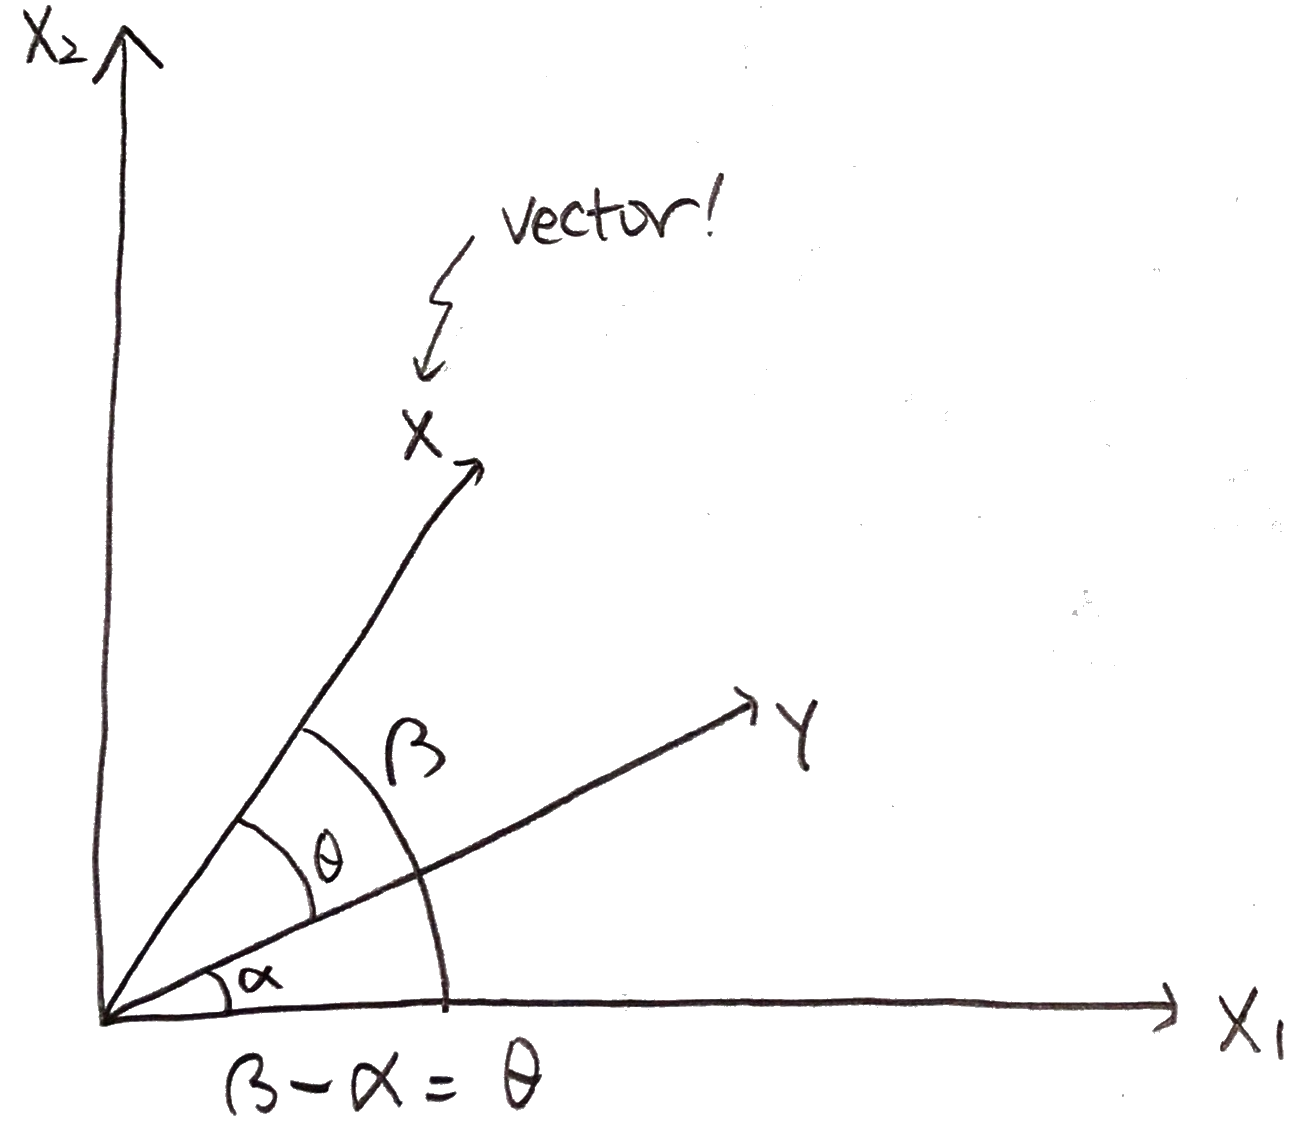 X₂
vector!
X
β
Y
θ
α
X₁
β - α = θ